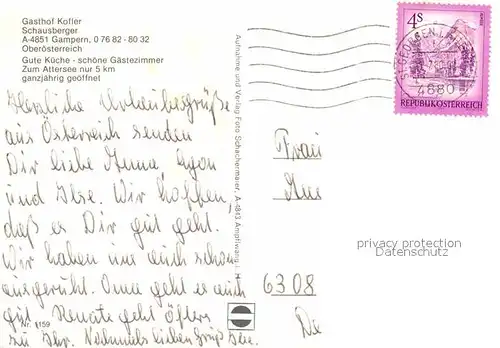 Gasthof Kofler
Schausberger
A-4851 Gampern, 0 76 82 - 80 32
Oberösterreich
Gute Küche - schöne Gästezimmer
Zum Attersee nur 5 km
ganzjährig geöffnet
Herzliche Urlaubsgrüße
aus Österreich senden
Dir liebe Anna, Egon
und Ilse. Wir hoffen,
daß es Dir gut geht.
Wir haben uns auch schon
ausgeruht. Oma geht es auch
gut Renate geht öfters
zu Ihr. Nochmals lieben Gruß Ilse.
Nr. 1159
Aufnahme und Verlag Foto Schachermaier, A-4843 Ampflwang i. H.
4S
REPUBLIK ÖSTERREICH
ST. GEORGEN
4880
Frau
6308
privacy protection
Datenschutz